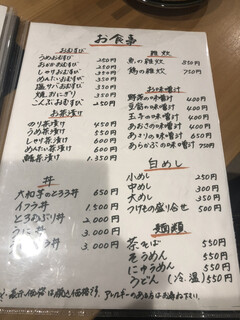 お食事
おむすび
うめおむすび 250円
おかかおむすび 250円
しゃけおむすび 350円
めんたいおむすび 350円
塩サバおむすび 350円
焼おにぎり 350円
こんぶおむすび 250円
お茶漬け
のり茶漬け 450円
うめ茶漬け 550円
しゃけ茶漬け 600円
めんたい茶漬け
鯛茶漬け 1.350
丼
大和芋のとろろ丼 650円
イクラ丼 1.500円
とろたぬき丼 2.000円
うに丼 3.000円
丼 3.000円
雑炊
魚の雑炊 850円
鶏の雑炊 750円
お味噌汁
野菜の味噌汁 400円
豆腐の味噌汁 400円
玉子の味噌汁 400円
あおさの味噌汁 400円
あさりの味噌汁 550円
あら汁の味噌汁 750円
白めし
小めし 250円
中めし 300円
大めし 350円
つけもの盛り合せ 500円
麺類
茶そば 550円
そうめん 550円
にゅうめん 550円
うどん(冷.温)550円
表示価格は税込価格です。アレルギーのある方はお尋ね下さい。